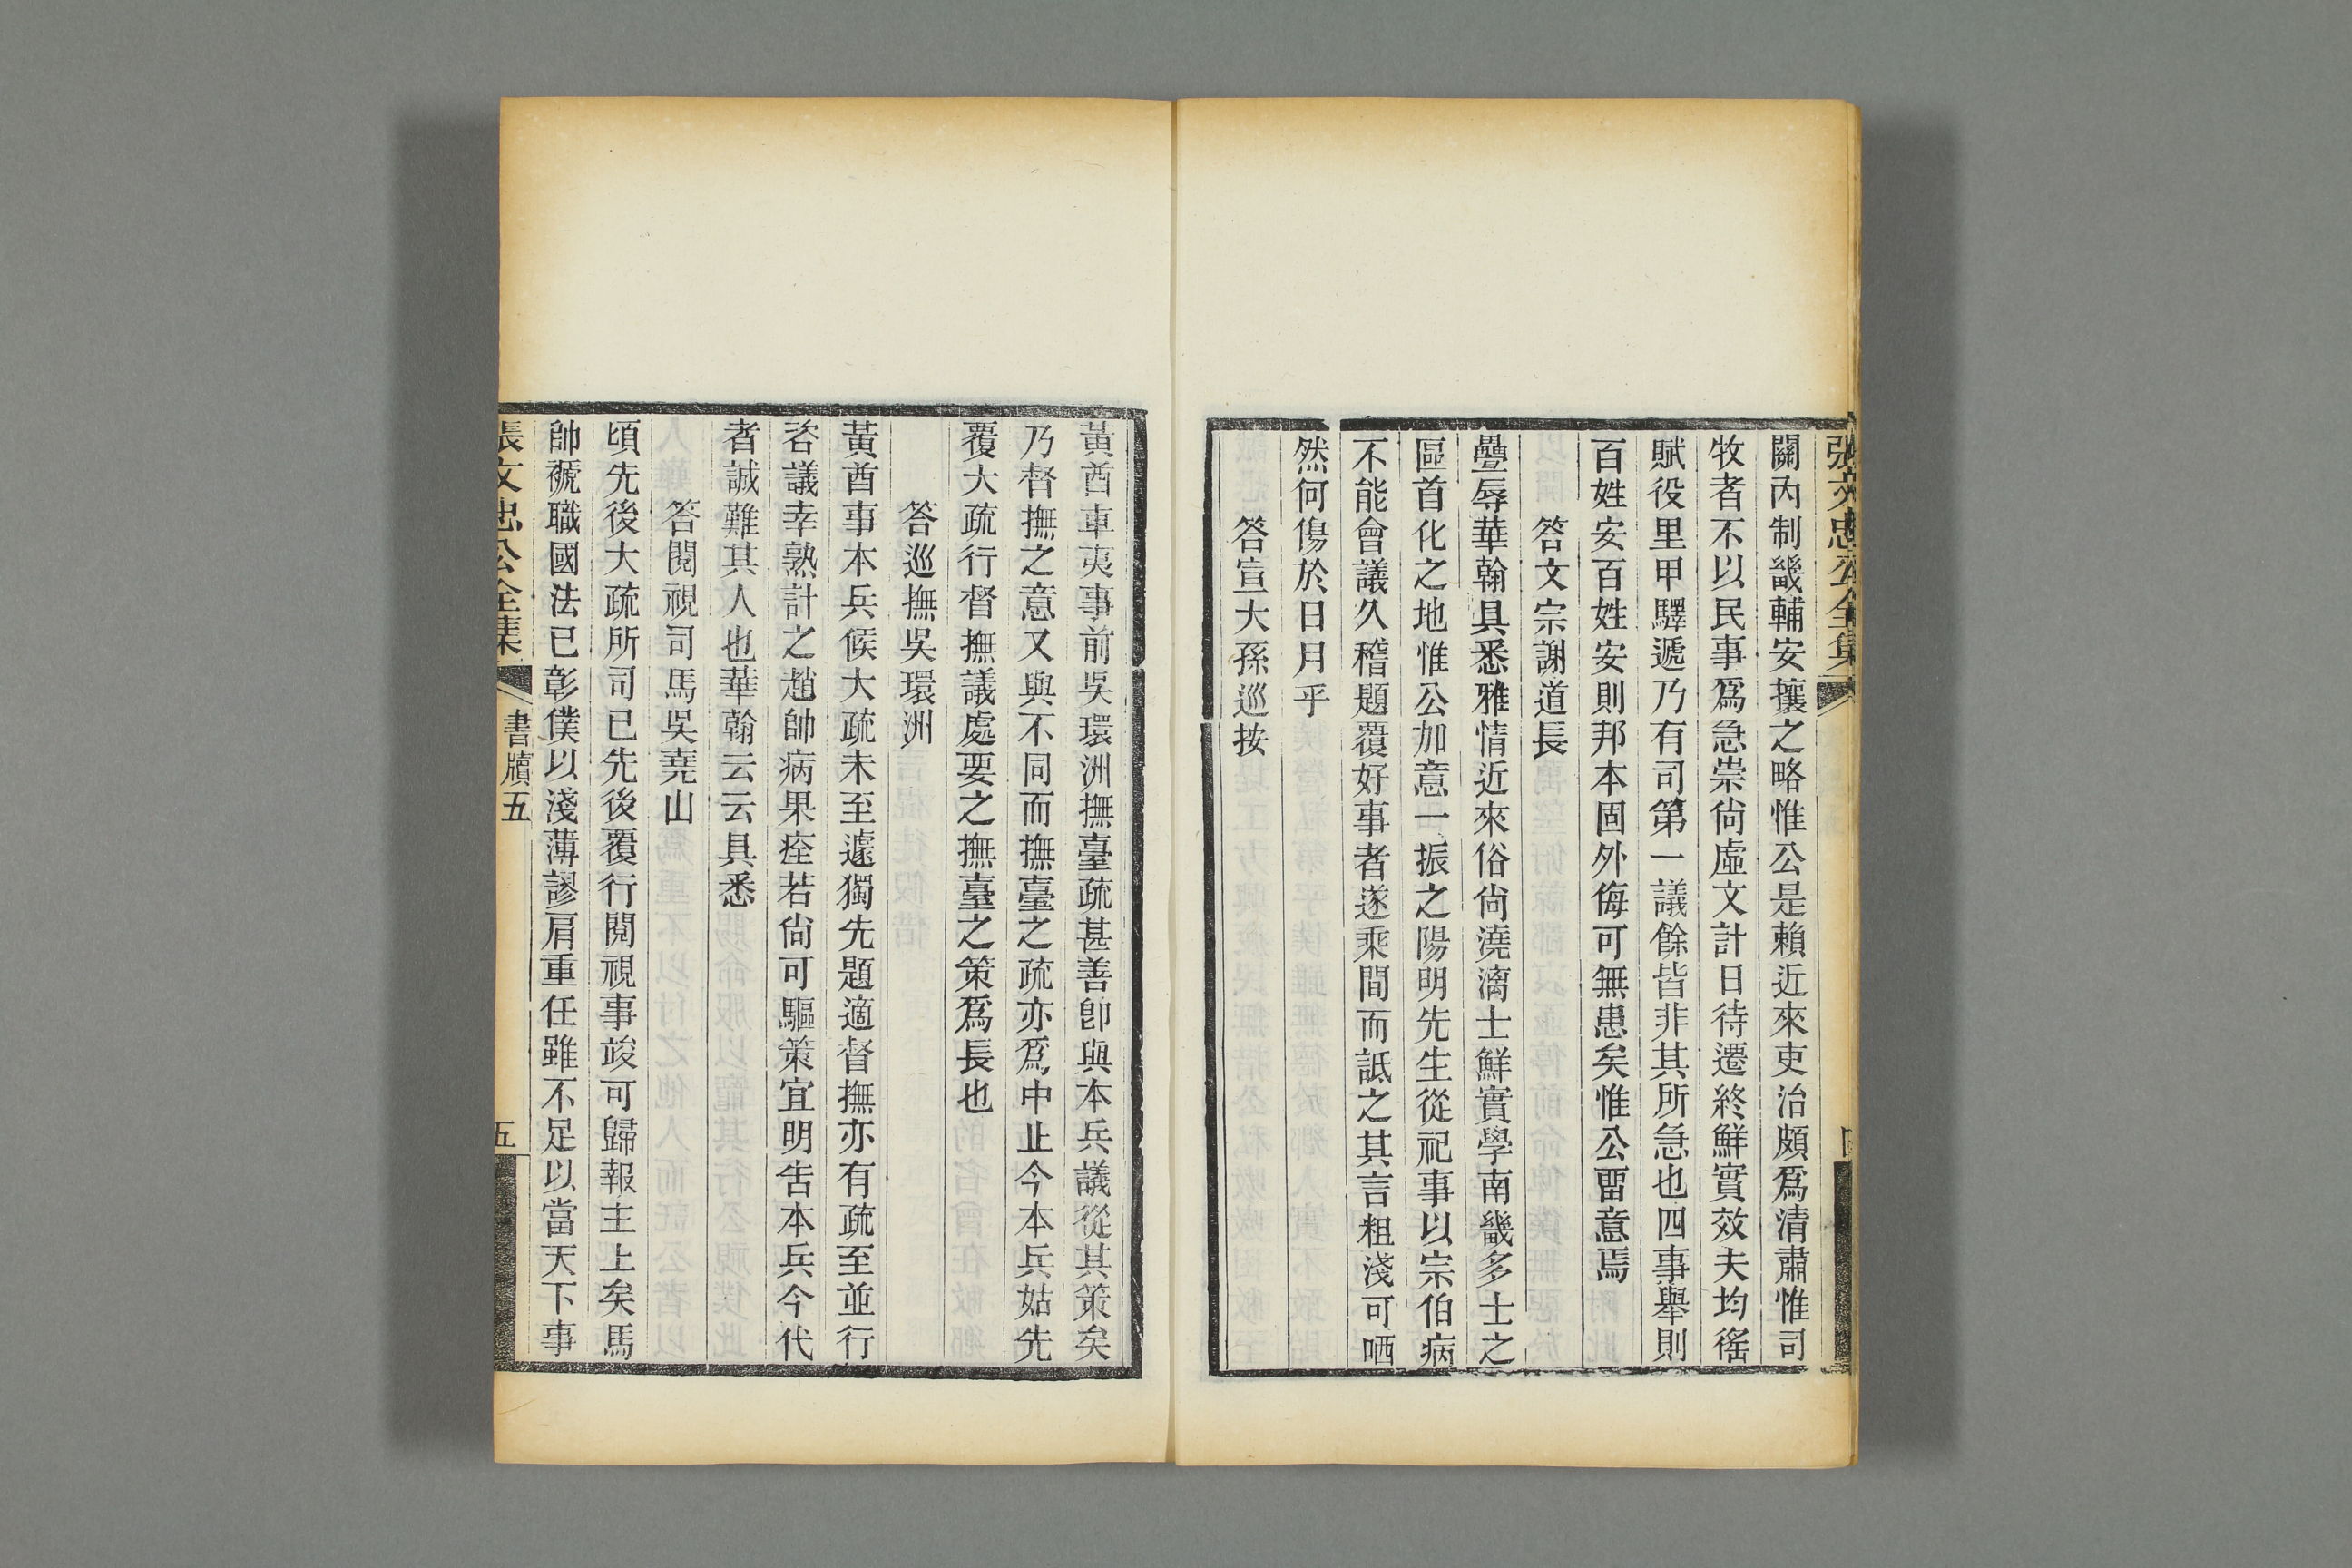 張文忠公全集
關內制畿輔安攘之略惟公是賴近來吏治頗爲清肅惟司
牧者不以民事爲急崇尙虛文計日待遷終鮮實效夫均徭
賦役里甲驛遞乃有司第一議餘皆非其所急也四事舉則
百姓安百姓安則邦本固外侮可無患矣惟公畱意焉
答文宗謝道長
疊辱華翰具悉雅情近來俗尙澆漓士鮮實學南畿多士之
區首化之地惟公加意一振之陽明先生從祀事以宗伯病
不能會議久稽題覆好事者遂乘間而詆之其言粗淺可哂
然何傷於日月乎
答宣大孫巡按
黃酋車夷事前吳環洲撫臺疏甚善卽與本兵議從其策矣
乃督撫之意又與不同而撫臺之疏亦爲中止今本兵姑先
覆大疏行督撫議處要之撫臺之策爲長也
答巡撫吳環洲
黃酋事本兵候大疏未至遽獨先題適督撫亦有疏至並行
咨議幸熟計之趙帥病果痊若尙可驅策宜明吿本兵今代
者誠難其人也華翰云云具悉
答閱視司馬吳堯山
頃先後大疏所司已先後覆行閱視事竣可歸報主上矣馬
帥褫職國法已彰僕以淺薄謬肩重任雖不足以當天下事
張文忠公全集
書牘五
五